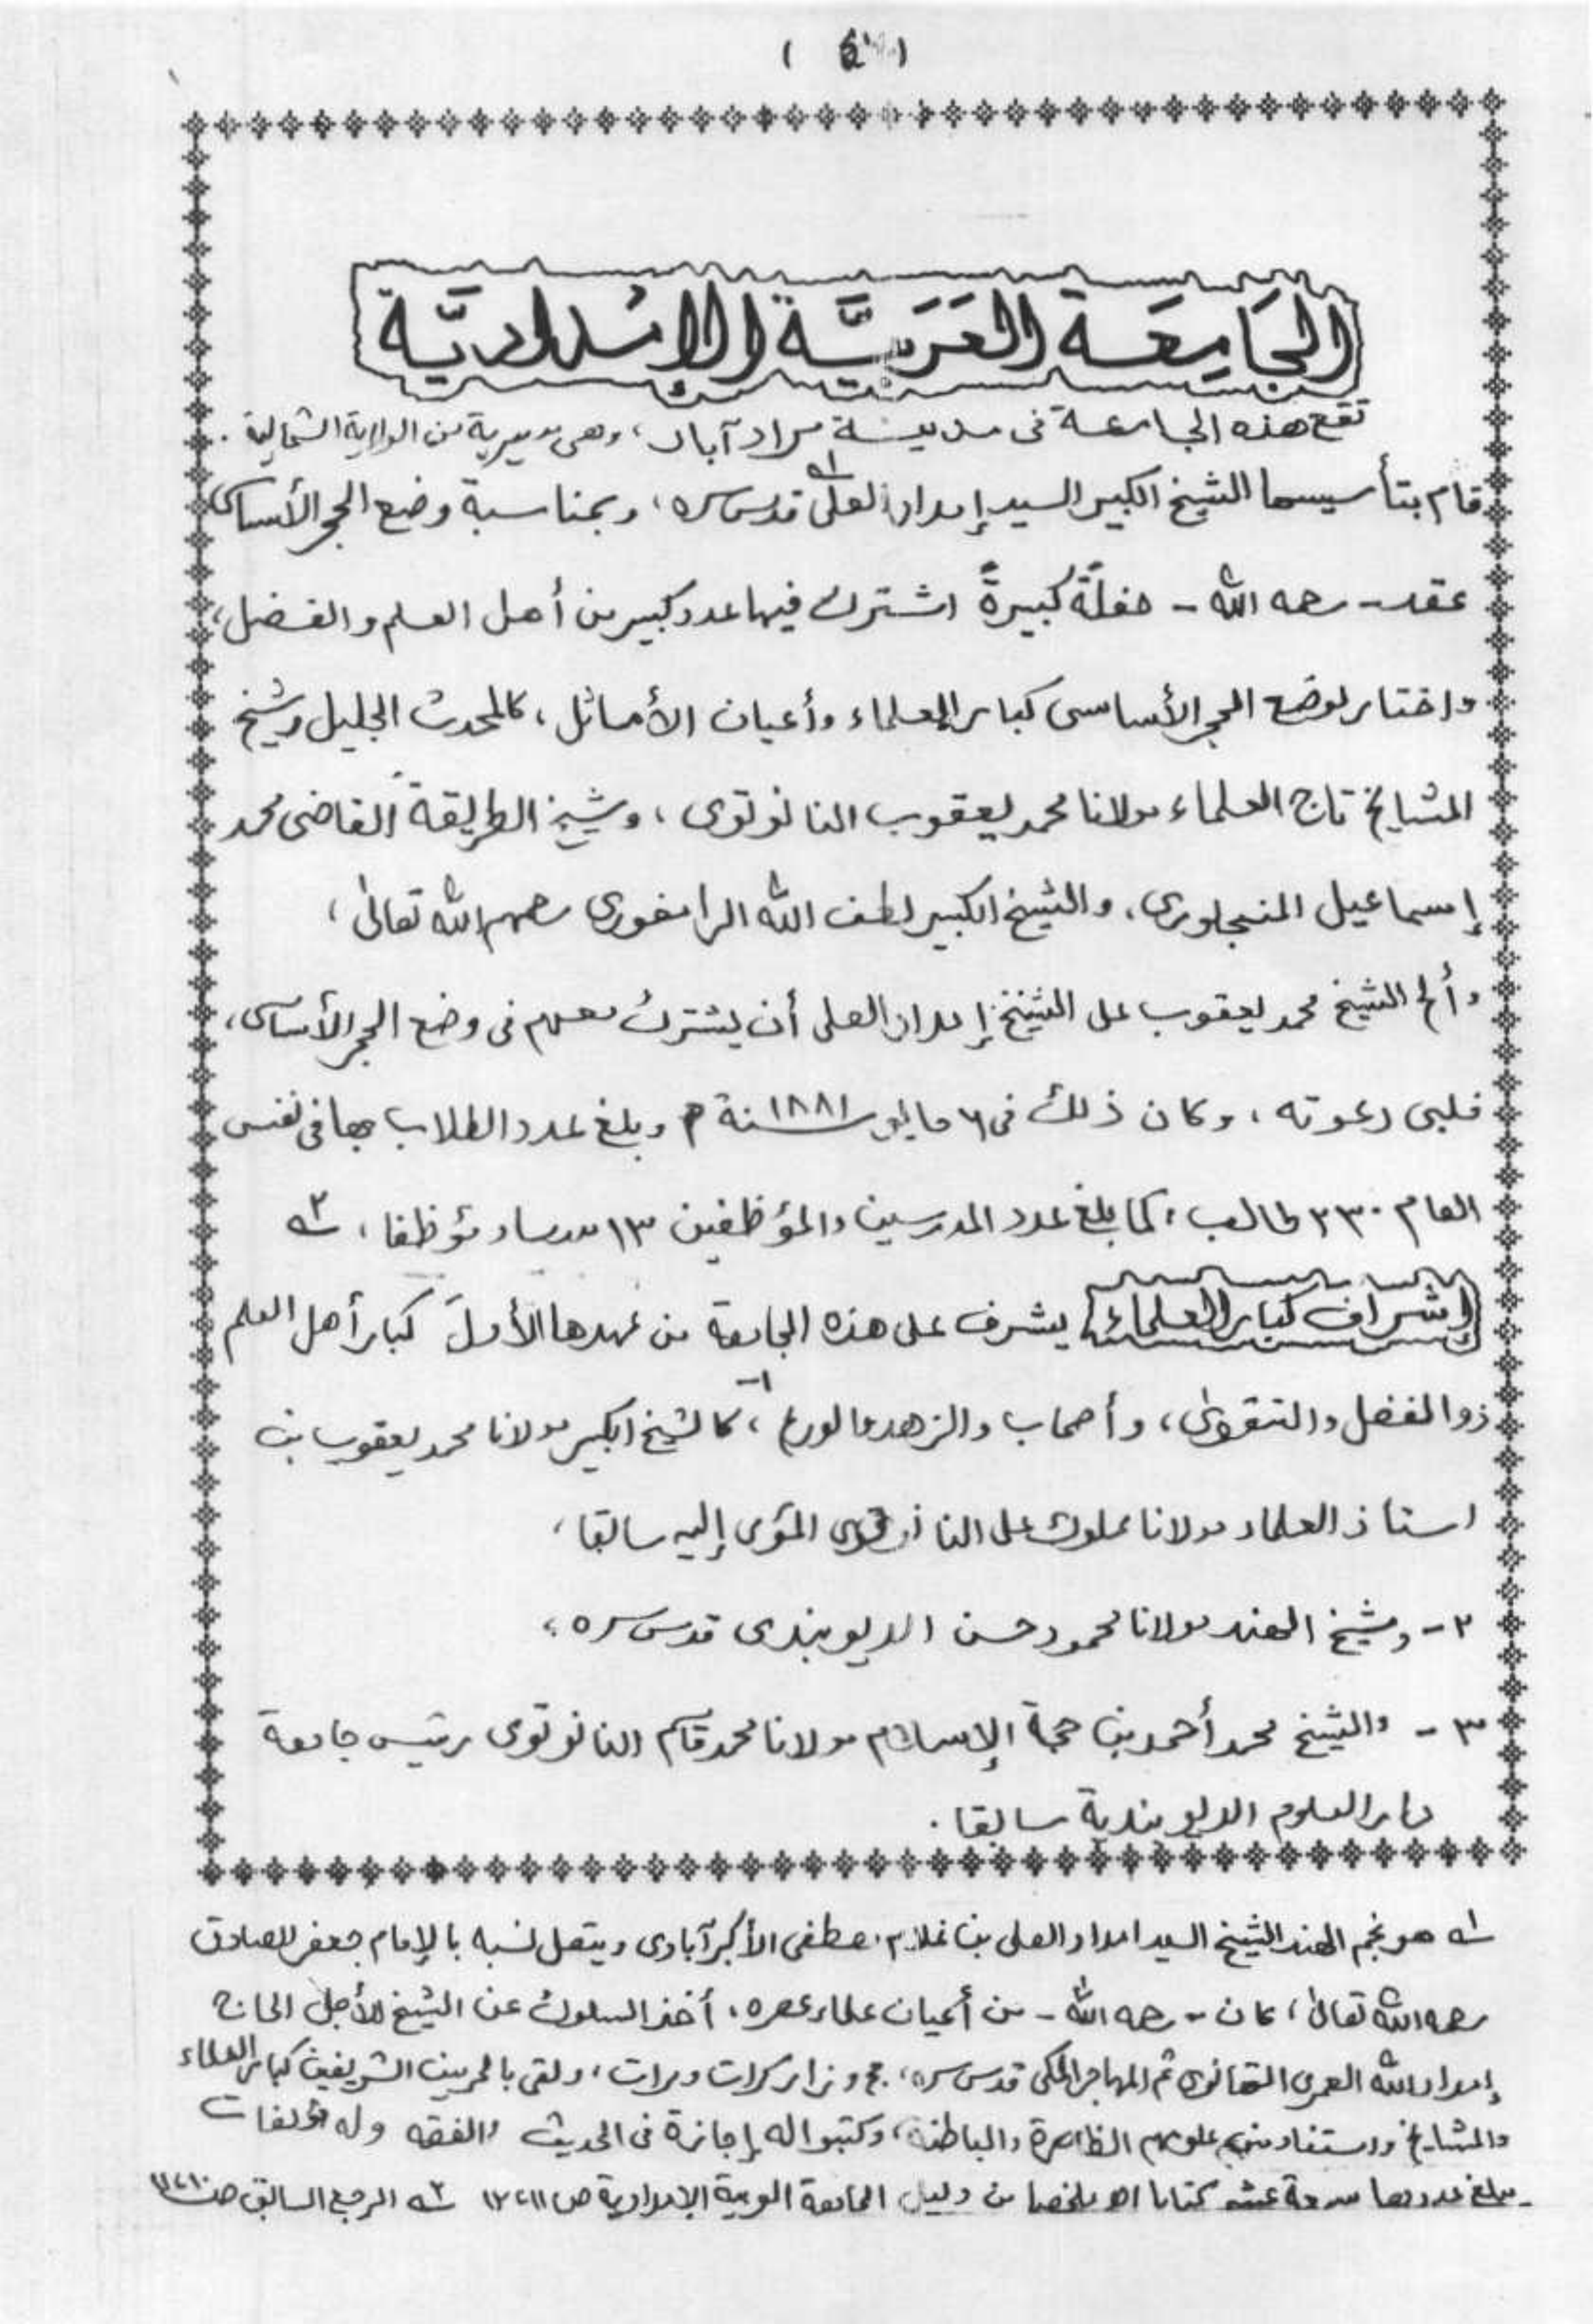 الجَامِعَة العَرَبِيَّة الإمْدَادِيَّة
تقع هذه الجامعة فى مدينة مراد آباد، وهى مديرية من الولاية الشمالية.
قام بتأسيسها الشيخ الكبير السيد إمداد العلى ١ه قدس سره، وبمناسبة وضع الحجر الأساسى
عقد - رحمه الله - حفلةً كبيرةً اشترك فيها عدد كبير من أهل العلم والفضل،
واختار لوضع الحجر الأساسى كبار العلماء وأعيان الأماثل، كالمحدث الجليل وشيخ
المشايخ تاج العلماء مولانا محمد يعقوب النانوتوى، وشيخ الطريقة القاضى محمد
إسماعيل المنجلورى، والشيخ الكبير لطف الله الرامفورى رحمهم الله تعالىٰ،
وألح الشيخ محمد يعقوب على الشيخ إمداد العلى أن يشترك معهم فى وضع الحجر الأساسى،
فلبى دعوته، وكان ذلك فى ٦ مايو سنة ١٨٨١ م وبلغ عدد الطلاب بها فى نفس
العام ٣٣٠ طالب، كما بلغ عدد المدرسين والمؤظفين ١٣ مدرسا ومؤظفا، ٢ه
إشراف كبار العلماء يشرف على هذه الجامعة من عهدها الأول كبار أهل العلم
ذو الفضل والتقوىٰ، وأصحاب والزهد والورع، ١- كالشيخ الكبير مولانا محمد يعقوب بن
استاذ العلماء مولانا مملوك على النانوتوى المؤمى إليه سابقا،
٢ - وشيخ الهند مولانا محمود حسن الديوبندى قدس سره،
٣ - والشيخ محمد أحمد بن حجة الإسلام مولانا محمد قاسم النانوتوى رئيس جامعة
دار العلوم الديوبندية سابقا.
١ه هو نجم الهند الشيخ السيد امداد العلى بن غلام مصطفى الأكبرآبادى ويتصل نسبه بالإمام جعفر الصادق
رحمه الله تعالىٰ، كان - رحمه الله - من أعيان علماء عصره، أخذ السلوك عن الشيخ الأجل الحاج
إمداد الله العمرى التهانوى ثم المهاجر المكى قدس سره، حج وزار كرات ومرات، ولقى بالحرمين الشريفين كبار العلماء
والمشايخ واستفاد منهم علومهم الظاهرة والباطنة، وكتبوا له إجازة فى الحديث والفقه وله مؤلفات
يبلغ عددها عشر كتابا اھ ملخصا من دليل الجامعة العربية الإمدادية ص ١١، ١٢ ٢ه المرجع السابق ص ١٠، ١١